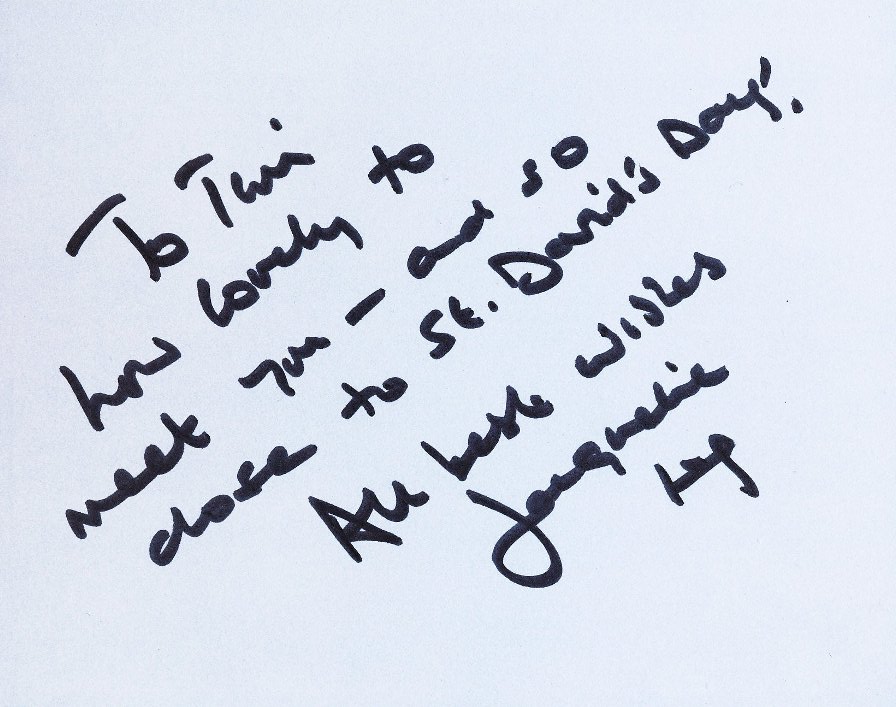 To
how lovely to
meet you - and so
close to St. David's Day!
All best wishes
Jacqueline